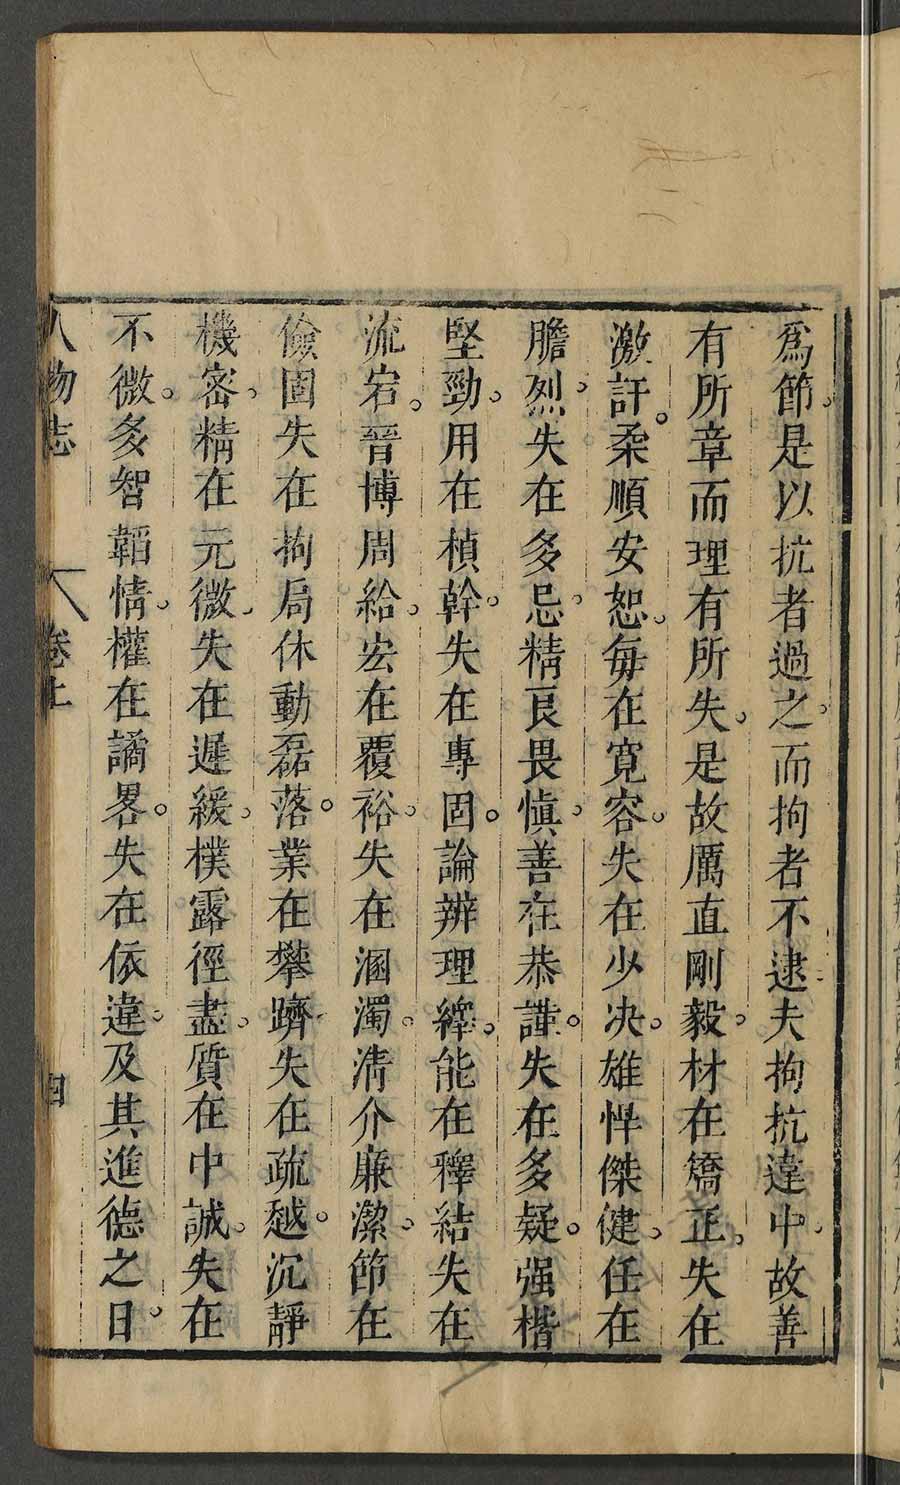 爲節是以抗者過之而拘者不逮夫拘抗違中故善
有所章而理有所失是故厲直剛毅材在矯正失在
激訐柔順安恕每在寛容失在少决雄悍傑健任在
膽烈失在多忌精良畏愼善在恭謹失在多疑强楷
堅勁用在楨幹失在專固論辨理繹能在釋結失在
流宕普博周給宏在覆裕失在溷濁淸介廉潔節在
儉固失在拘局休動磊落業在攀躋失在疏越沉靜
機密精在元微失在遲緩樸露徑盡質在中誠失在
不微多智韜情權在譎畧失在依違及其進德之日
人物志 卷上 四